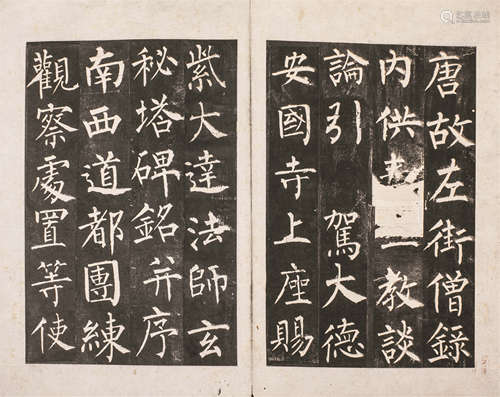 唐故左街僧錄
内供教談
論引駕大德
安國寺上座賜
紫大達法師玄
秘塔碑銘并序
南西道都團練
觀察處置等使